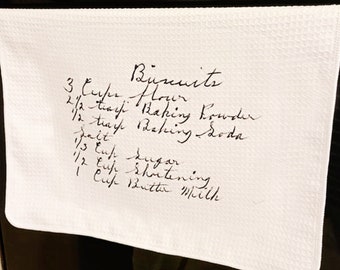 Biscuits
3 Cups flour
2 1/2 tsp Baking Powder
1/2 tsp Baking Soda
Salt
1/3 Cup Sugar
1/2 Cup Shortening
1 Cup Butter Milk